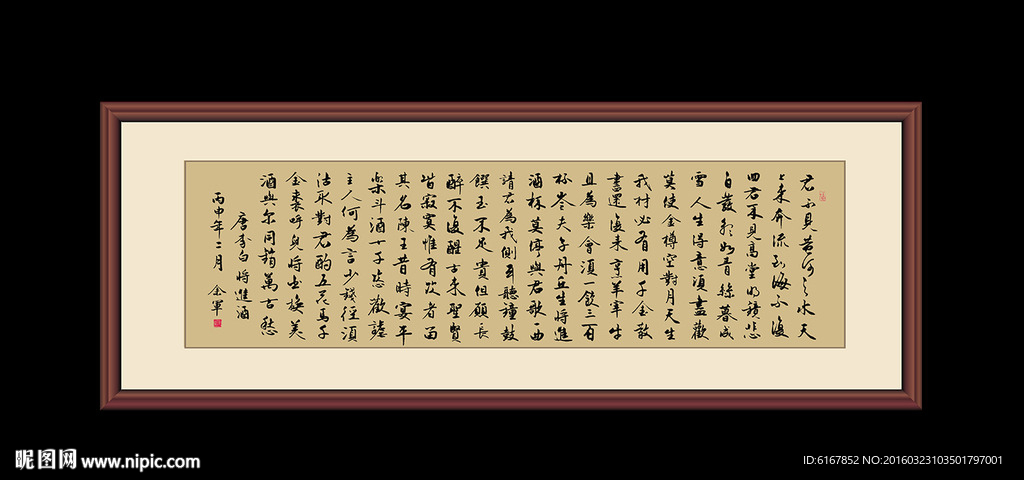 君不見黃河之水天
上來奔流到海不復
回君不見高堂明鏡悲
白髮朝如青絲暮成
雪人生得意須盡歡
莫使金樽空對月天生
我材必有用千金散
盡還復來烹羊宰牛
且為樂會須一飲三百
杯岑夫子丹丘生將進
酒杯莫停與君歌一曲
請君為我側耳聽鐘鼓
饌玉不足貴但願長
醉不復醒古來聖賢
皆寂寞惟有飲者留
其名陳王昔時宴平
樂斗酒十千恣歡謔
主人何為言少錢徑須
沽取對君酌五花馬千
金裘呼兒將出換美
酒與爾同銷萬古愁
唐李白將進酒
丙申年二月 金軍
昵图网 www.nipic.com
ID:6167852 NO:20160323103501797001